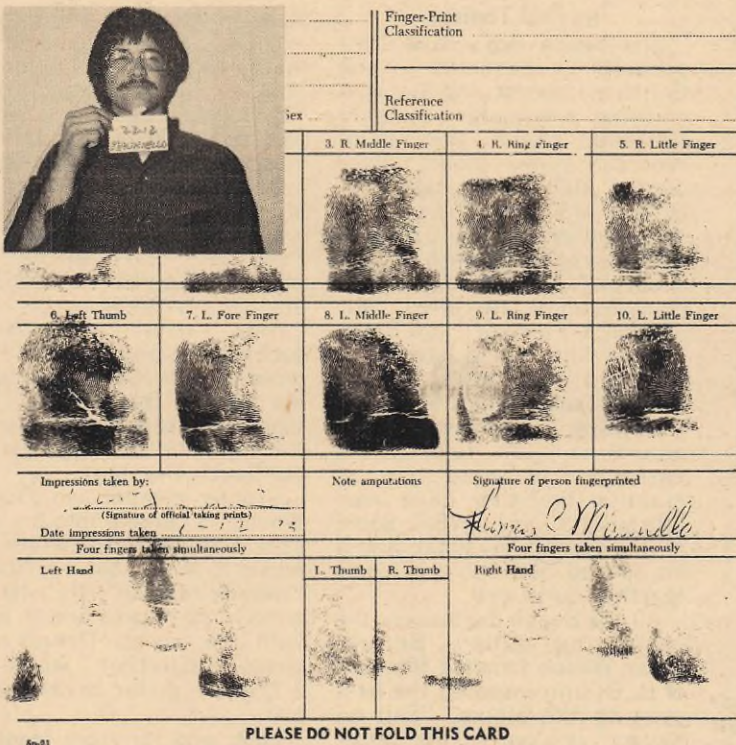 Finger-Print
Classification
Reference
Classification
Sex
2212
3. R. Middle Finger
4. R. Ring Finger
5. R. Little Finger
6. Left Thumb
7. L. Fore Finger
8. L. Middle Finger
9. L. Ring Finger
10. L. Little Finger
Impressions taken by:
(Signature of official taking prints)
Date impressions taken
Note amputations
Signature of person fingerprinted
Four fingers taken simultaneously
Four fingers taken simultaneously
Left Hand
L. Thumb
R. Thumb
Right Hand
PLEASE DO NOT FOLD THIS CARD